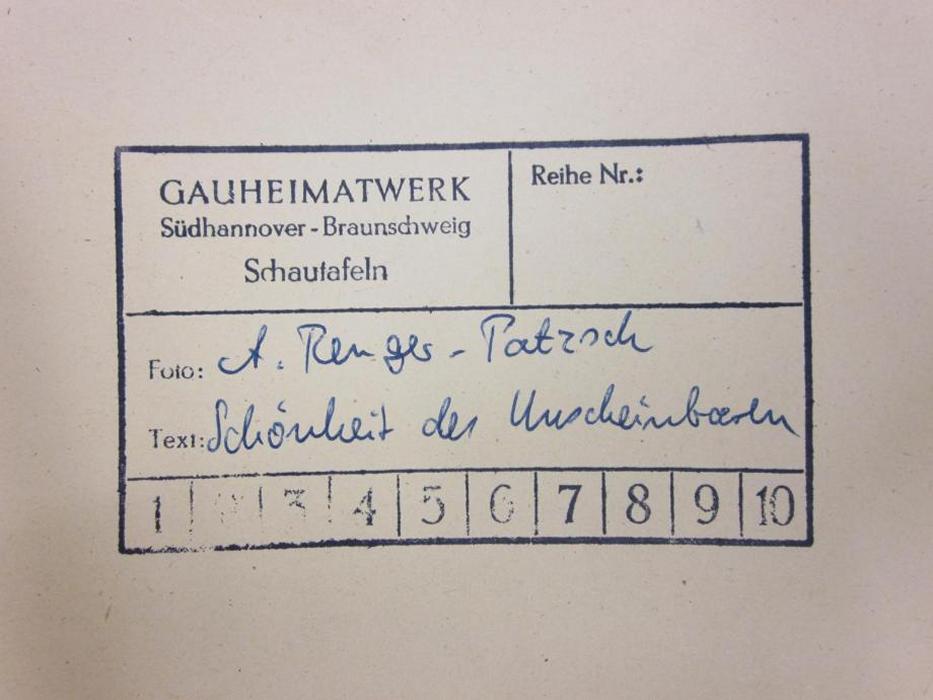 GAUHEIMATWERK
Südhannover-Braunschweig
Schautafeln
Reihe Nr.:
Foto: A. Renger-Patzsch
Text: Schönheit des Unscheinbaren
1 2 3 4 5 6 7 8 9 10